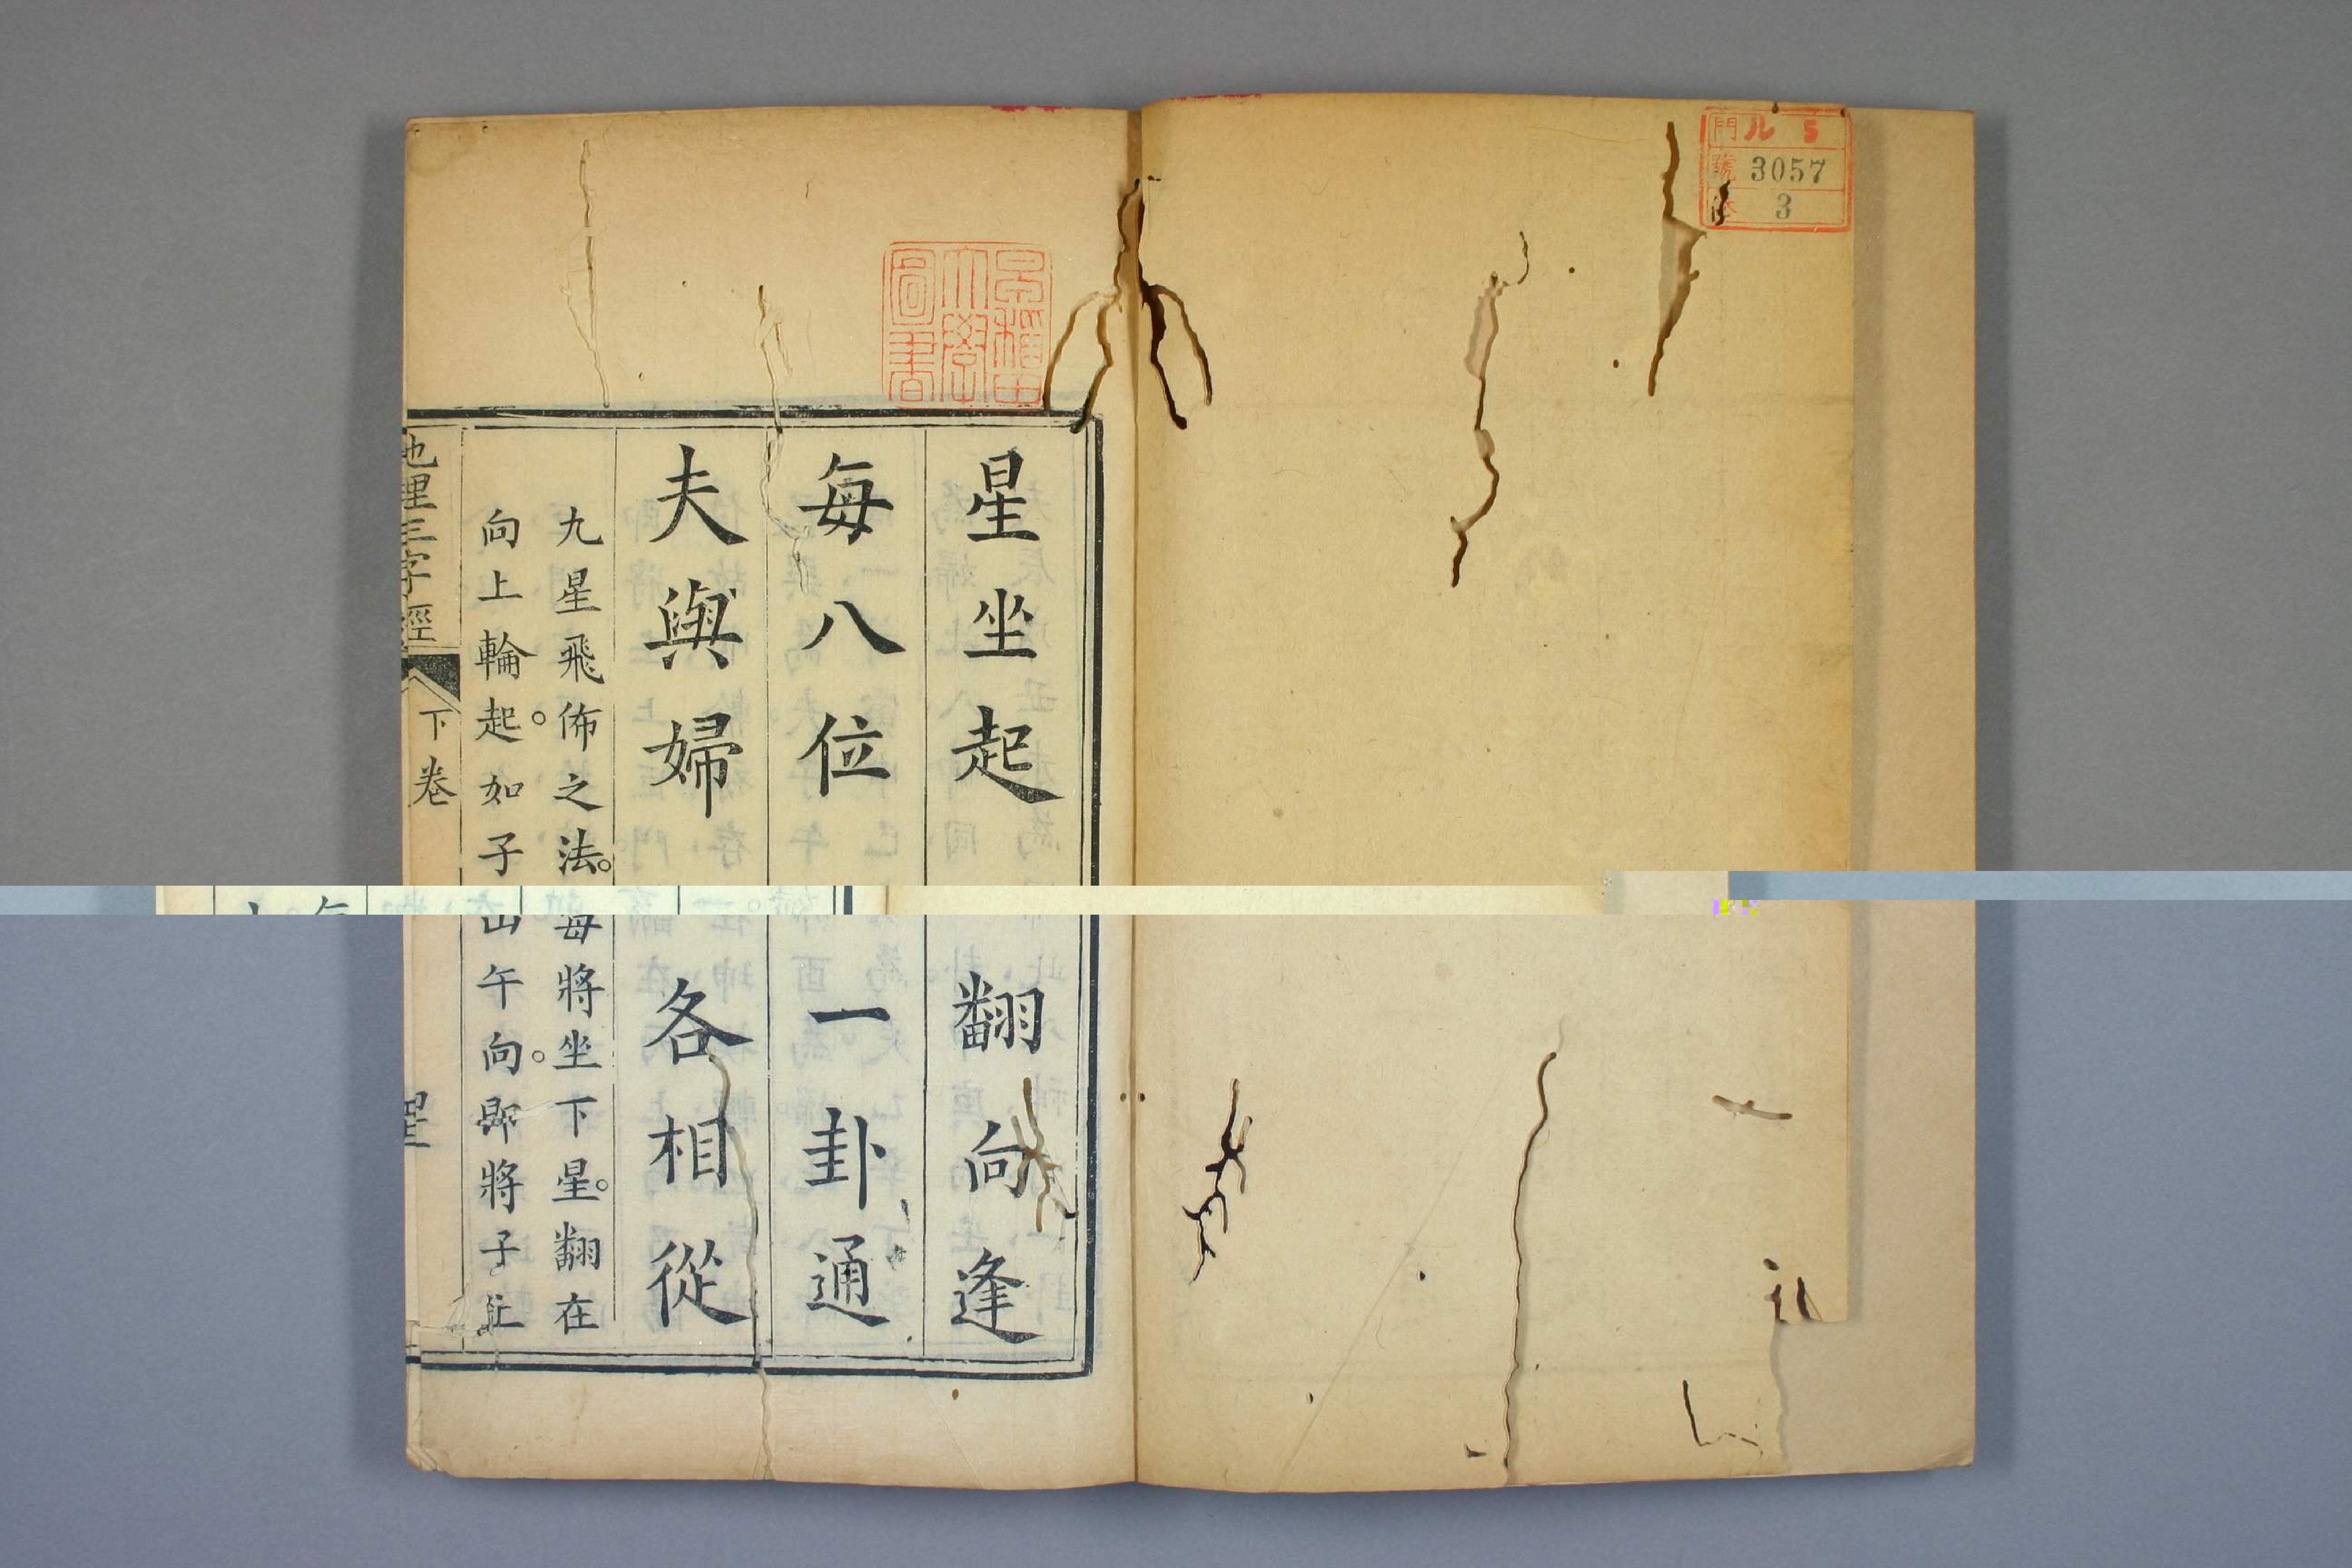 門 ル 5
號 3057
3
早稲田
大學
圖書
星坐起 翻向逢
每八位 一卦通
夫與婦 各相從
九星飛佈之法。每將坐下星。翻在
向上輪起。如子山午向。即將子
地理三字經 下卷